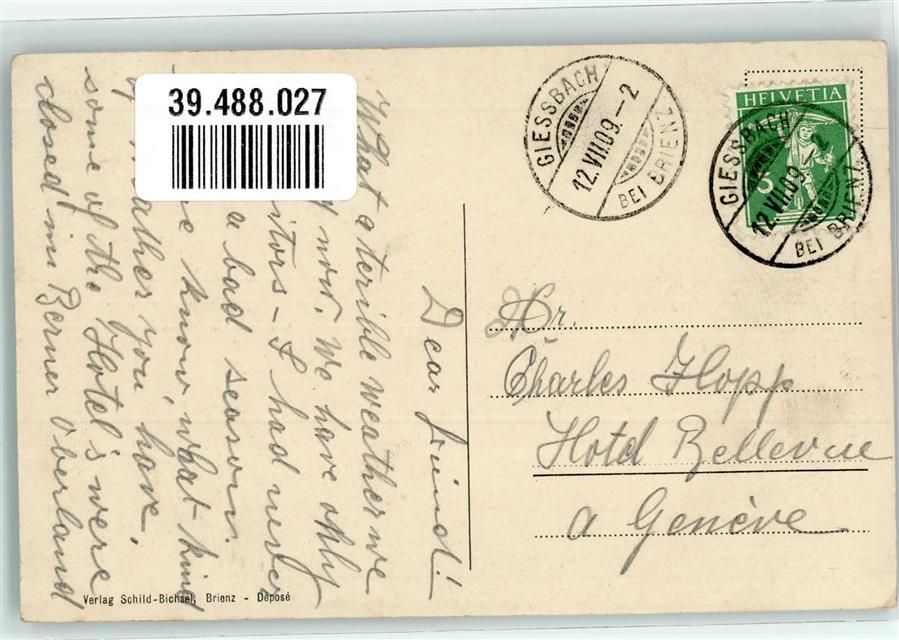 39.488.027
GIESSBACH
12.VII.09.-2
BEI BRIENZ
HELVETIA
5
GIESSBACH
12.VII.09
BEI BRIENZ
Dear friend!
What a terible weather we
now. We have only
itors - I had never
a bad season.
know, what kind
of weather you have.
some of the Hotel's were
closed in Berner Oberland
Mr.
Charles Hopp
Hotel Bellevue
a Genève
Verlag Schild-Bichsel, Brienz - Déposé